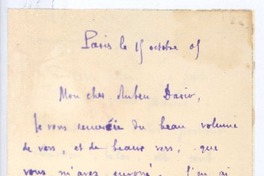 Paris le 15 octobre 05
Mon cher Ruben Dario,
Je vous remercie du beau volume
de vers, et de beaux vers, que
vous m'avez envoyé.